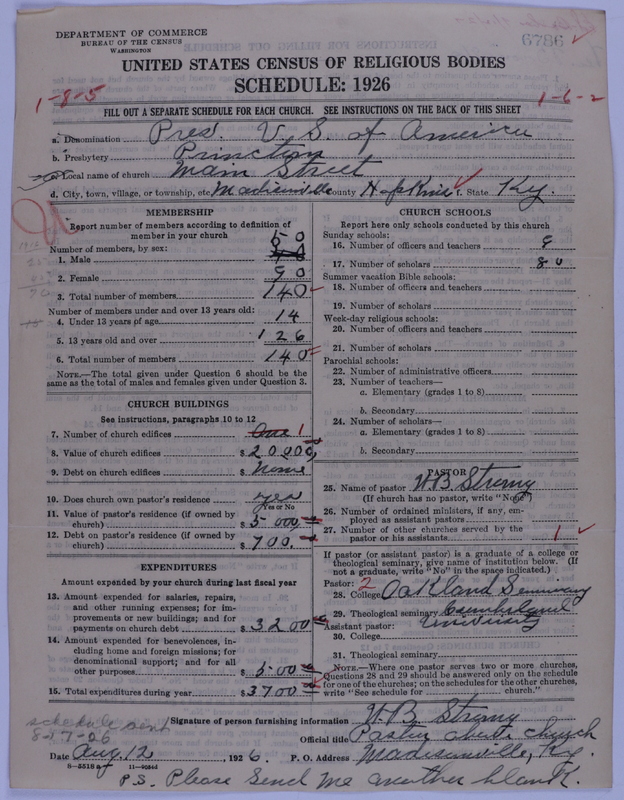 DEPARTMENT OF COMMERCE
BUREAU OF THE CENSUS
WASHINGTON
6786
UNITED STATES CENSUS OF RELIGIOUS BODIES
SCHEDULE: 1926
1-8-5
1-6-2
FILL OUT A SEPARATE SCHEDULE FOR EACH CHURCH. SEE INSTRUCTIONS ON THE BACK OF THIS SHEET
a. Denomination Pres. U. S. of America
b. Presbytery Princeton
c. Local name of church Main Street
d. City, town, village, or township, etc. Madisonville County Hopkins f. State Ky.
MEMBERSHIP
Report number of members according to definition of member in your church
Number of members, by sex:
1. Male 50
2. Female 90
3. Total number of members 140
Number of members under and over 13 years old:
4. Under 13 years of age 14
5. 13 years old and over 126
6. Total number of members 140
NOTE.—The total given under Question 6 should be the
same as the total of males and females given under Question 3.
CHURCH BUILDINGS
See instructions, paragraphs 10 to 12
7. Number of church edifices One 1
8. Value of church edifices $ 20000
9. Debt on church edifices $ None
10. Does church own pastor's residence yes
Yes or No
11. Value of pastor's residence (if owned by
church) $ 5000
12. Debt on pastor's residence (if owned by
church) $ 700.
EXPENDITURES
Amount expended by your church during last fiscal year
13. Amount expended for salaries, repairs,
and other running expenses; for im-
provements or new buildings; and for
payments on church debt $ 3200
14. Amount expended for benevolences, in-
cluding home and foreign missions; for
denominational support; and for all
other purposes $ 500
15. Total expenditures during year $ 3700
CHURCH SCHOOLS
Report here only schools conducted by this church
Sunday schools:
16. Number of officers and teachers 8
17. Number of scholars 80
Summer vacation Bible schools:
18. Number of officers and teachers
19. Number of scholars
Week-day religious schools:
20. Number of officers and teachers
21. Number of scholars
Parochial schools:
22. Number of administrative officers
23. Number of teachers—
a. Elementary (grades 1 to 8)
b. Secondary
24. Number of scholars—
a. Elementary (grades 1 to 8)
b. Secondary
PASTOR
25. Name of pastor W B Strong
(If church has no pastor, write "None")
26. Number of ordained ministers, if any, em-
ployed as assistant pastors
27. Number of other churches served by the
pastor or his assistants 1
If pastor (or assistant pastor) is a graduate of a college or
theological seminary, give name of institution below. (If
not a graduate, write "No" in the space indicated.)
Pastor: 2
28. College Oakland Seminary
29. Theological seminary Cumberland
Assistant pastor: University
30. College
31. Theological seminary
NOTE.—Where one pastor serves two or more churches,
Questions 28 and 29 should be answered only on the schedule
for one of the churches; on the schedules for the other churches,
write "See schedule for church."
schedule sent
8-27-26
Signature of person furnishing information W B Strong
Official title Pastor above church
Date Aug. 12, 1926. P. O. Address Madisonville, Ky.
P.S. Please send me another blank.